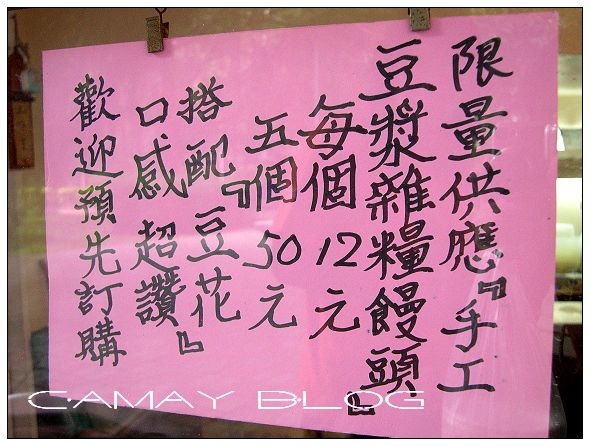 限量供應『手工
豆漿雜糧饅頭』
每個12元
五個50元
搭配『豆花』
口感超讚
歡迎預先訂購
CAMAY BLOG